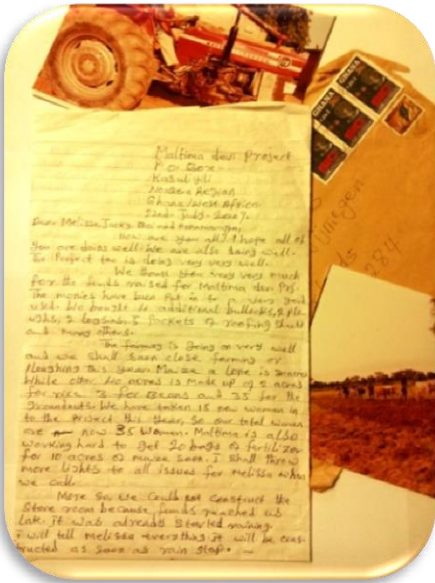 Maltima dev Project
P.O Box
Kasuliyili
Northern Region
Ghana/West Africa
22nd July-
Dear Melissa, Jacky, and
how are you all? I hope all of
you are doing well. We are also doing well.
The Project too is doing very very well.
We thank you very very much
for the funds raised for Maltima dev Proj.
The monies have been put in to a very good
use. We bought 4 additional bullocks, 2
5 Packets of roofing
and many others.
The farming is going on very well
and we shall soon close farming or
Ploughing this year. Maize a lone is 20acres
While other 40 acres is made up of 2 acres
for rice 3 for Beans and 35 for the
groundnuts. We have taken 15 new women in
to the project this year, so our total women
are now 35 Women. Maltima is also
working hard to get 20 bags of fertilizer
for 10 acres of maize soon. I shall throw
more lights to all issues for Melissa when
we call.
More so, we could not construct the
Store room because funds reached us
late. it was already started raining.
I will tell Melissa everything it will be cons-
tructed as soon as rain stop.
GHANA
GHANA
Nijmegen